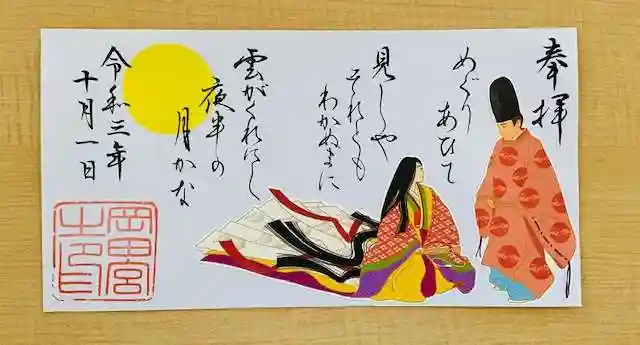 奉拝
めぐりあひて
見しや
それとも
わかぬまに
雲がくれにし
夜半の
月かな
令和三年
十月一日
岡田宮
之印